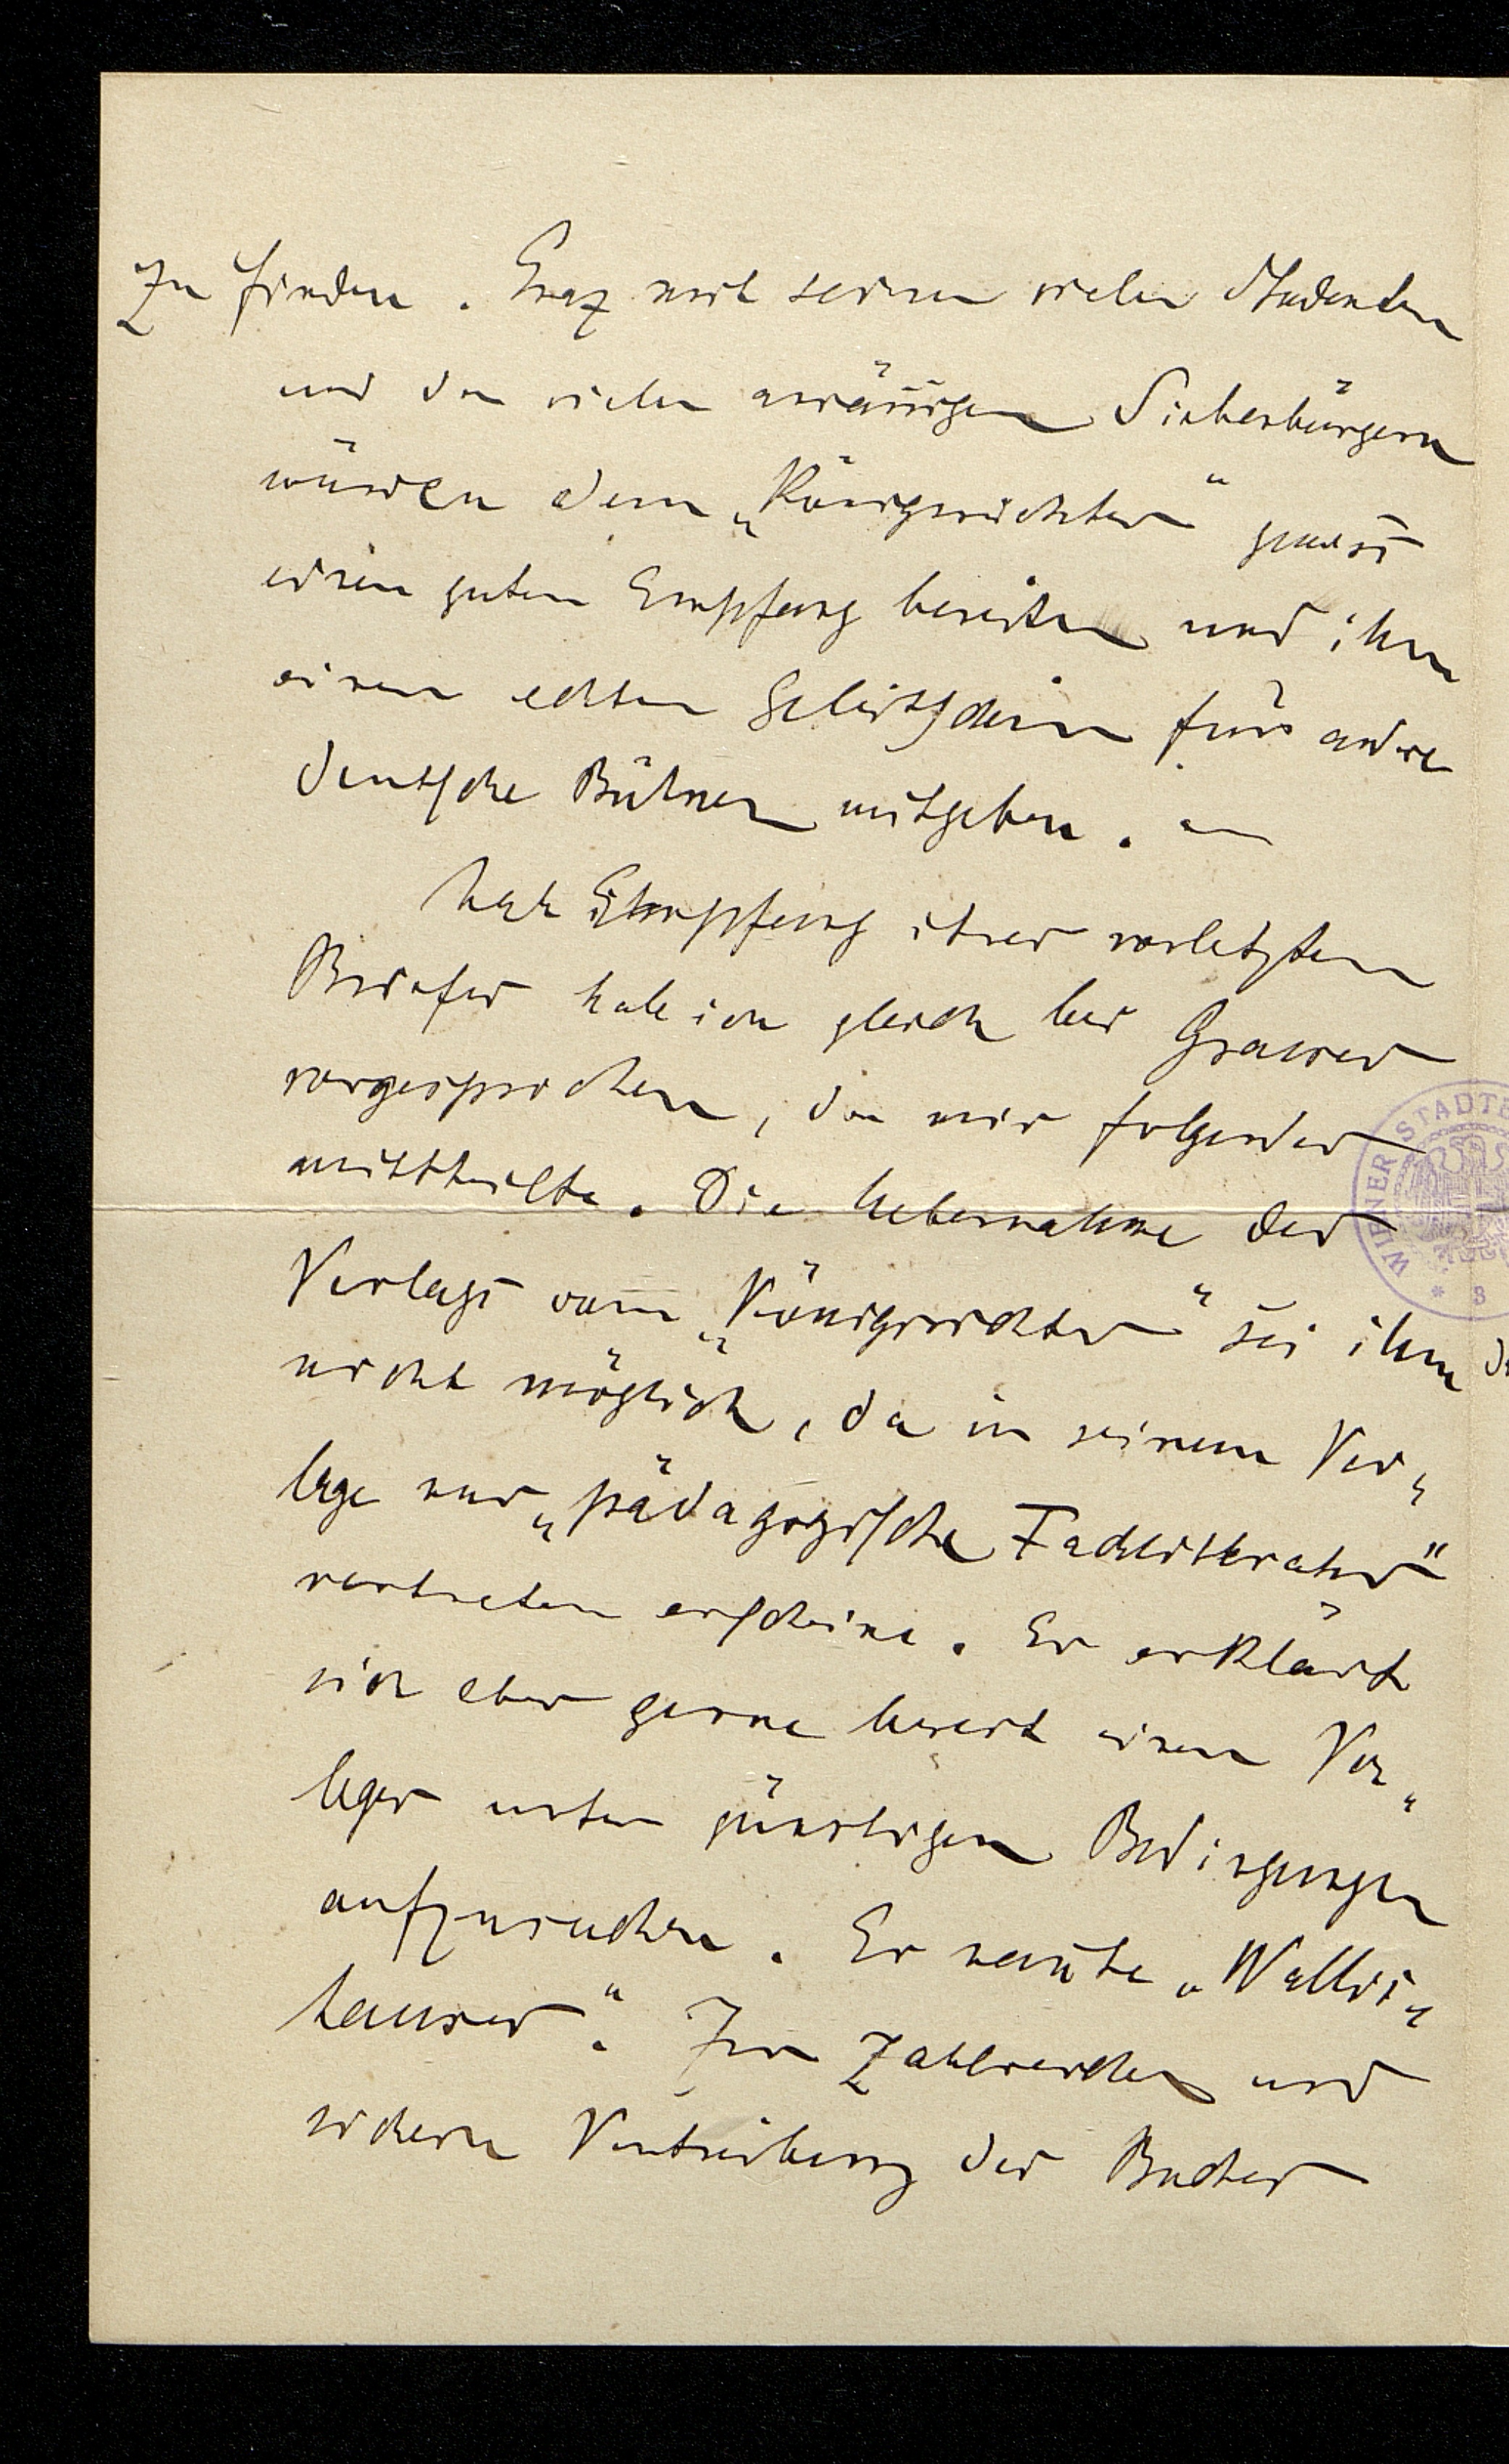 zu finden. Graz mit seinen vielen Studenten
und den vielen ansässigen Siebenbürgern
würden dem „Königsrichter“ gewiss
einen guten Empfang bereiten und ihm
einen echten Geleitschein für andre
deutsche Bühnen mitgeben. —
Nach Empfang ihres vorletzten
Briefes habe ich gleich bei Graeser
vorgesprochen, der mir folgendes
mittheilte. Die Uebernahme des
Verlags vom „Königsrichter“ sei ihm
nicht möglich, da in seinem Ver„
lage nur „pädagogische Fachlitteratur“
vertreten erscheine. Er erklärt
sich aber gerne bereit einen Ver„
leger unter günstigen Bedingungen
aufzusuchen. Er nannte „Wallis„
hauser“. Zur Zahlreichen und
sichern Vertreibung des Buches
WIENER STADTB
* 3